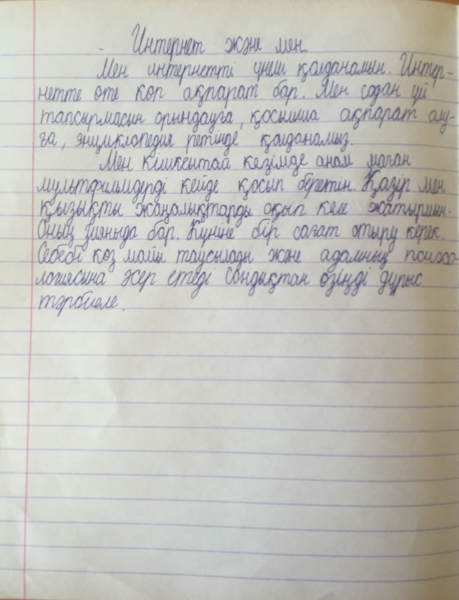 Интернет және мен.
Мен интернетті үнемі қолданамын. Интер-
нетте өте көп ақпарат бар. Мен одан үй
тапсырмасын орындауға, қосымша ақпарат алу-
ға, энциклопедия ретінде қолданамыз.
Мен кішкентай кезімде анам маған
мультфильмдерді кейде қосып беретін. Қазір мен
қызықты жаңалықтарды оқып келе жатырмын.
Оның зияныда бар. Күніне бір сағат отыру керек.
Себебі көз майы таусылады және адамның психо-
логиясына әсер етеді Сондықтан өзіңді дұрыс
тәрбиеле.